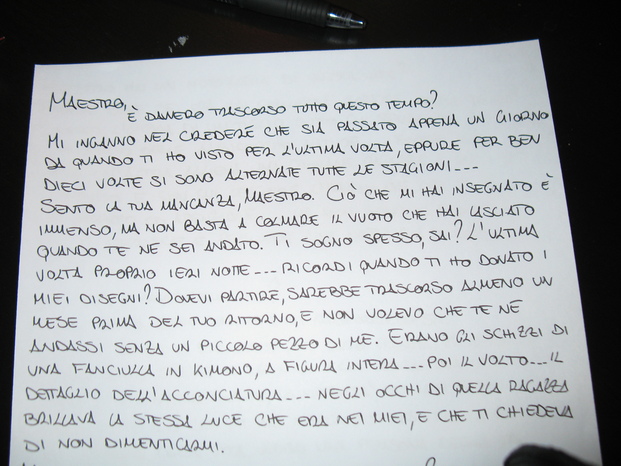 MAESTRO,
È DAVVERO TRASCORSO TUTTO QUESTO TEMPO?
MI INGANNO NEL CREDERE CHE SIA PASSATO APPENA UN GIORNO
DA QUANDO TI HO VISTO PER L'ULTIMA VOLTA, EPPURE PER BEN
DIECI VOLTE SI SONO ALTERNATE TUTTE LE STAGIONI...
SENTO LA TUA MANCANZA, MAESTRO. CIÒ CHE MI HAI INSEGNATO È
IMMENSO, MA NON BASTA A COLMARE IL VUOTO CHE HAI LASCIATO
QUANDO TE NE SEI ANDATO. TI SOGNO SPESSO, SAI? L'ULTIMA
VOLTA PROPRIO IERI NOTTE... RICORDI QUANDO TI HO DONATO I
MIEI DISEGNI? DOVEVI PARTIRE, SAREBBE TRASCORSO ALMENO UN
MESE PRIMA DEL TUO RITORNO, E NON VOLEVO CHE TE NE
ANDASSI SENZA UN PICCOLO PEZZO DI ME. ERANO GLI SCHIZZI DI
UNA FANCIULLA IN KIMONO, A FIGURA INTERA... POI IL VOLTO... IL
DETTAGLIO DELL'ACCONCIATURA... NEGLI OCCHI DI QUELLA RAGAZZA
BRILLAVA LA STESSA LUCE CHE ERA NEI MIEI, E CHE TI CHIEDEVA
DI NON DIMENTICARMI.